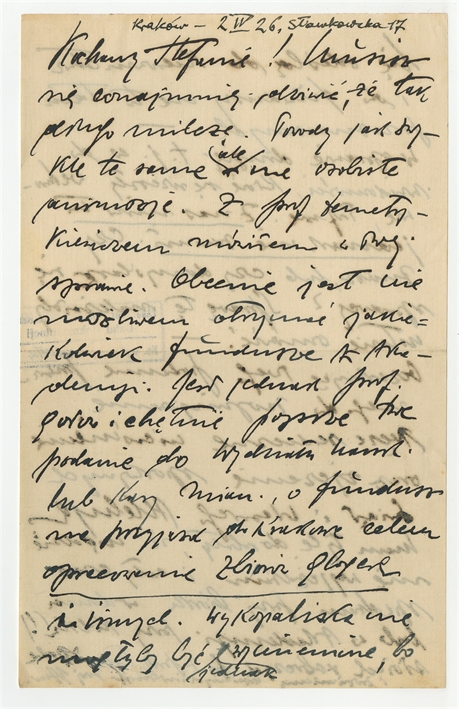 Kraków – 2 IV 26. Sławkowska 17
Kochany Stefanie! Musisz
się conajmniej dziwić, że tak
długo milczę. Powody jak zwy-
kle te same ale nie osobiste
animozje. Z prof Demetry-
kiewiczem mówiłem o Twej
sprawie. Obecnie jest nie
możliwem otrzymać jakie=
kolwiek fundusze z Aka-
demji. Jest jednak prof.
gotów i chętnie poprze Twe
podanie do Wydziału nauk.
lub Kasy Mian., o fundusz
na przyjazd do Krakowa celem
opracowania zbioru Glogera
i innych. Wykopaliska nie
mogłyby być wymienione, bo
jednak